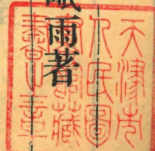 雨著
天津市
人民圖
書館藏
書之章